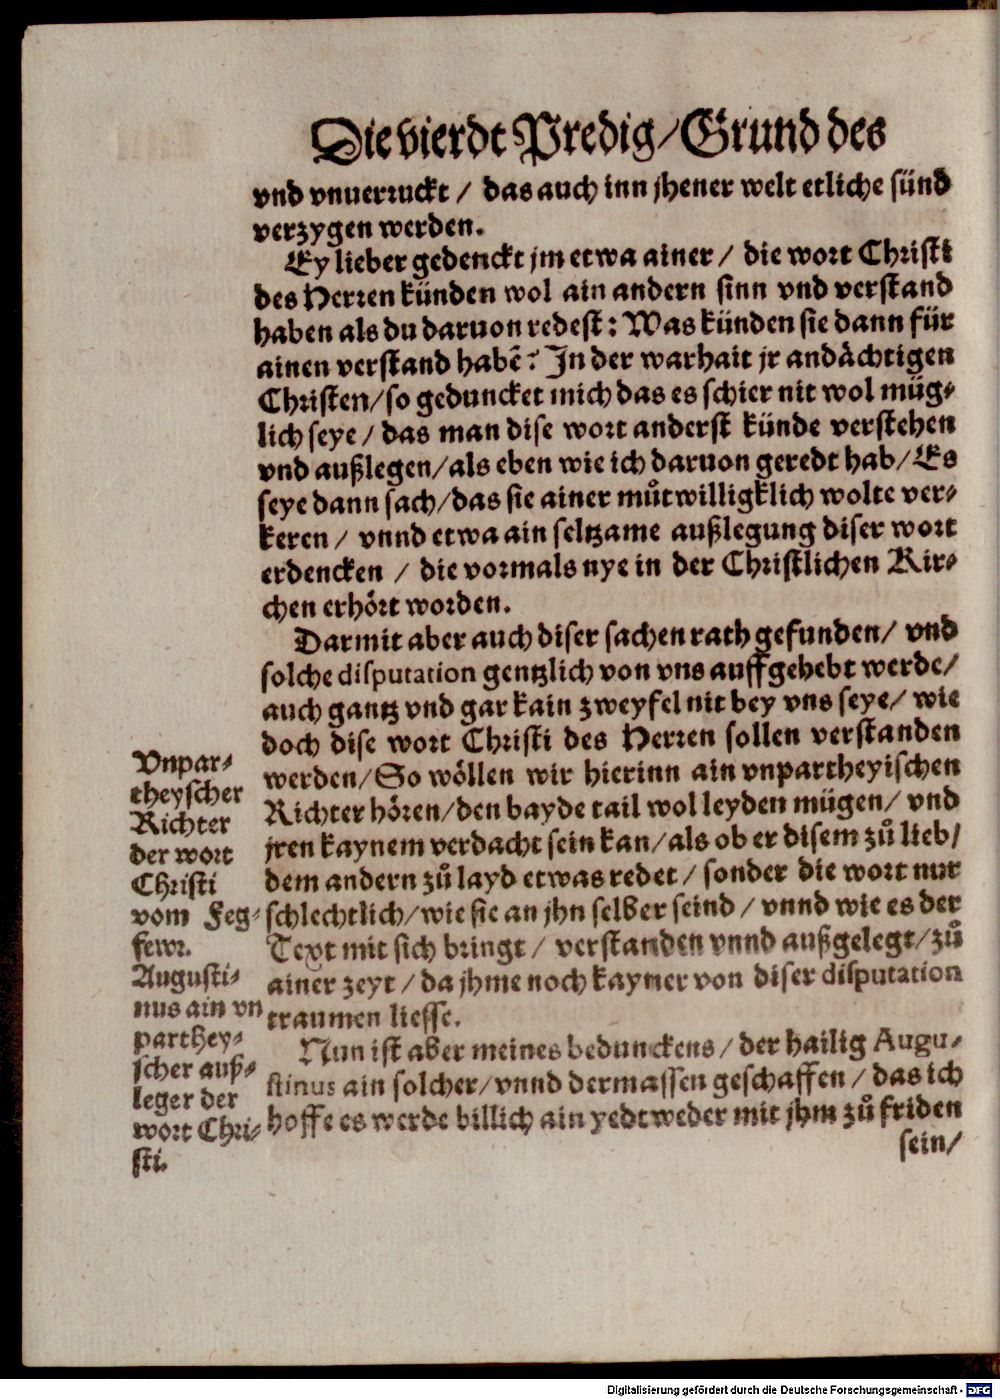 Die vierdt Predig/ Grund des
vnd vnuerruckt / das auch inn jhener welt etliche sünd
verzygen werden.
Ey lieber gedenckt jm etwa ainer / die wort Christi
des Herren künden wol ain andern sinn vnd verstand
haben als du daruon redest: Was künden sie dann für
ainen verstand habē? In der warhait jr andächtigen
Christen/ so geduncket mich das es schier nit wol müg-
lich seye / das man dise wort anderst künde verstehen
vnd außlegen/ als eben wie ich daruon geredt hab/ Es
seye dann sach/ das sie ainer můtwilligklich wolte ver-
keren / vnnd etwa ain seltzame außlegung diser wort
erdencken / die vormals nye in der Christlichen Kir-
chen erhört worden.
Darmit aber auch diser sachen rath gefunden/ vnd
solche disputation gentzlich von vns auffgehebt werde/
auch gantz vnd gar kain zweyfel nit bey vns seye/ wie
doch dise wort Christi des Herren sollen verstanden
werden/ So wöllen wir hierinn ain vnpartheyischen
Richter hören/ den bayde tail wol leyden mügen/ vnd
jren kaynem verdacht sein kan/ als ob er disem zů lieb/
dem andern zů layd etwas redet / sonder die wort nur
schlechtlich/ wie sie an jhn selber seind / vnnd wie es der
Text mit sich bringt / verstanden vnnd außgelegt/ zů
ainer zeyt / da jhme noch kayner von diser disputation
traumen liesse.
Nun ist aber meines bedunckens / der hailig Augu-
stinus ain solcher/ vnnd dermassen geschaffen / das ich
hoffe es werde billich ain yedtweder mit jhm zů friden
sein/
Vnpar-
theyscher
Richter
der wort
Christi
vom Feg-
fewr.
Augusti-
nus ain vn
parthey-
scher auß-
leger der
wort Chri-
sti.
Digitalisierung gefördert durch die Deutsche Forschungsgemeinschaft - DFG